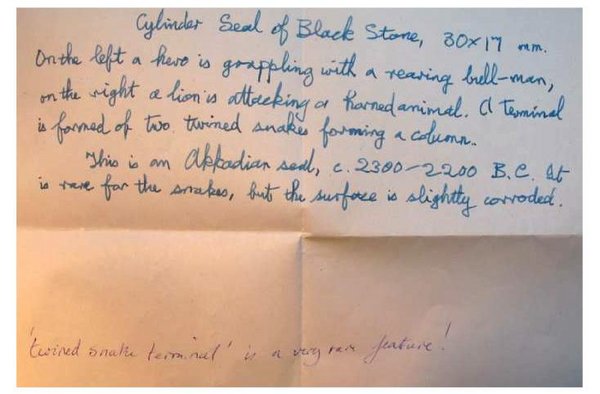 Cylinder Seal of Black Stone, 30x17 mm.
On the left a hero is grappling with a rearing bull-man,
on the right a lion is attacking a horned animal. A terminal
is formed of two twined snakes forming a column.
This is an Akkadian seal, c. 2300-2200 B.C. It
is rare for the snakes, but the surface is slightly corroded.
'twined snake terminal' is a very rare feature!